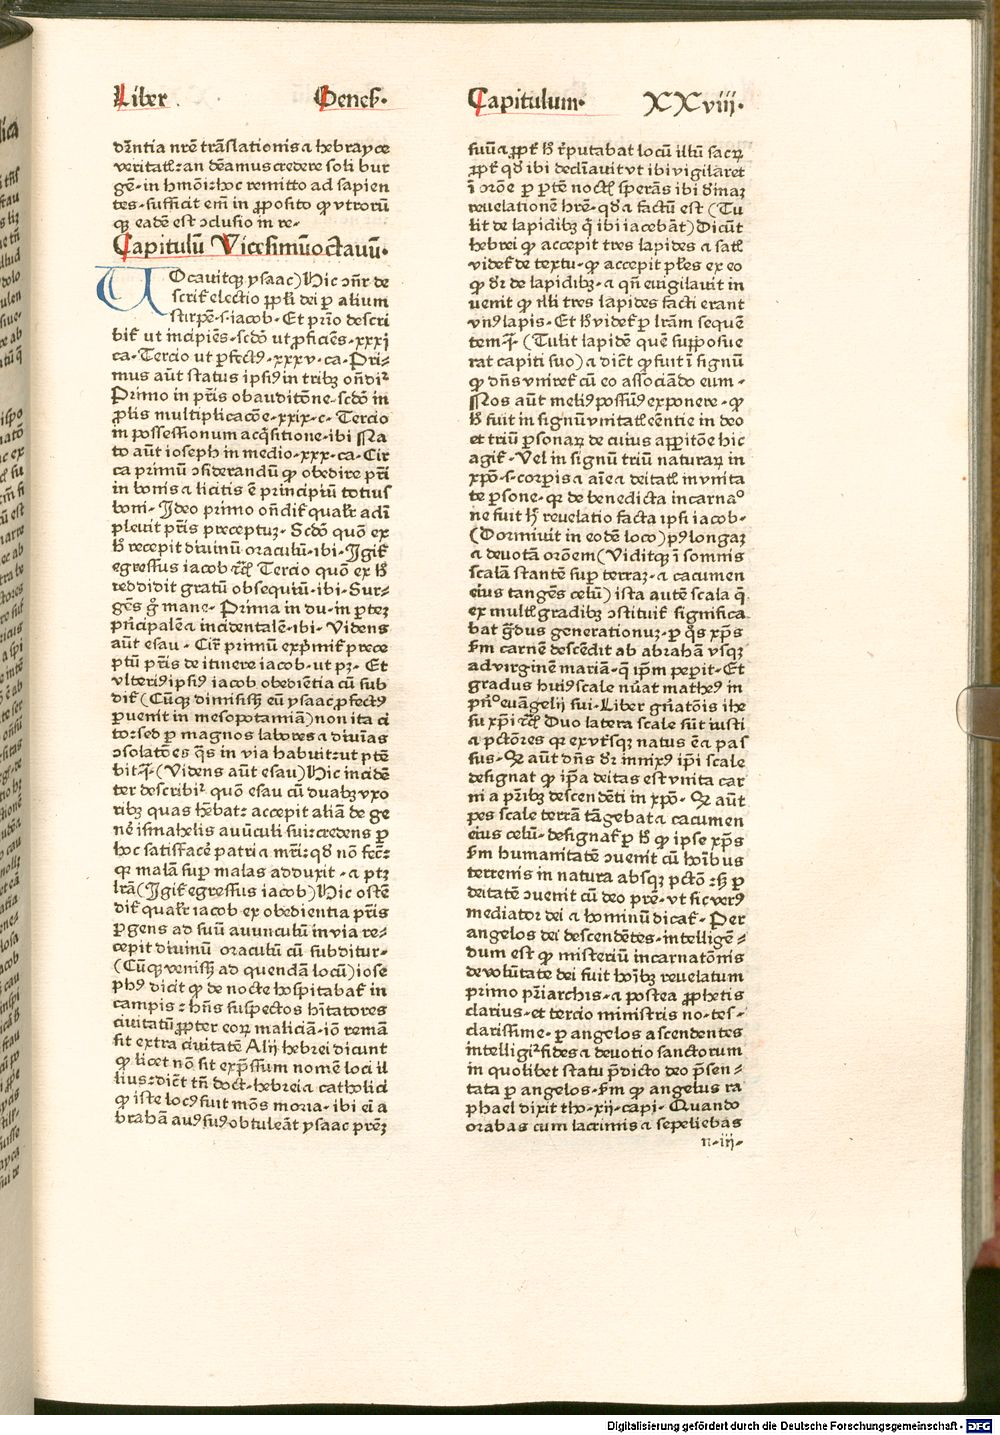 Liber . Genes̄. Capitulum. XXviii.
dr̄ntia nrē trāslationis a hebrayce
veritatꝭ: an dēamus credere soli bur
gē. in hmōi: hoc remitto ad sapien
tes. sufficit em̄ in ꝓposito ꝙ vtrorū
qꝫ eadē est ↄclusio in re.
Capitulū Vicesimūoctauū.
UOcauitqꝫ ysaac) Hic ↄn̄r de
scribit̄ electio ꝓpl̄i dei ꝑ alium
stirpē. s. iacob. Et prīo descri
bit̄ ut incipiēs. scdō ut ꝓficiēs. xxxi
ca. Tercio ut ꝑfectꝰ. xxxv. ca. Pri⸗
mus aūt status ipsiꝰ in tribꝫ on̄diꝉ
Primo in pr̄is obauditōne. scdō in
ꝓlis multiplicacōe. xxix. c. Tercio
in possessionum acq̄sitione. ibi Na
to aūt ioseph in medio. xxx. ca. Cir
ca primū ↄsiderandū ꝙ obedire pr̄i
in bonis a licitis ē principiū totius
boni. Ideo primo on̄dit̄ qualr̄ adī
pleuit pr̄is preceptuꝫ. Scdō quō ex
h̄ recepit diuinū oraculū. ibi. Igit̄
egressus iacob ⁊cꝭ Tercio quō ex h̄
reddidit gratū obsequiū. ibi. Sur⸗
gēs g̊ mane. Prima in du. in ꝑteꝫ
pn̄cipalē a incidentalē. ibi. Videns
aūt esau. Cir̄ primū exp̄mit̄ prece
ptū pr̄is de itinere iacob. ut pꝫ. Et
vlteriꝰ ipsiꝰ iacob obediētia cū sub
dit̄ (Cūqꝫ dimisissꝫ eū ysaac ꝓfectꝰ
ꝑuenit in mesopotamiā) non ita ci
to: sed ꝑ magnos labores a diuīas
ↄsolatōes qs̄ in via habuit: ut ptē
bit. ꝗ̄. (Videns aūt esau) Hic incidē
ter describiꝉ quō esau cū duabꝫ vxo
ribꝫ quas hēbat: accepit aliā de ge
nē ismahelis auūculi sui: credens ꝑ
hoc satisfacē patri a mr̄i: qd̄ nō fec̄:
qꝛ malā suꝑ malas adduxit. a ptꝫ
lrā (Igit̄ egressus iacob) Hic ostē
dit̄ qualr̄ iacob ex obedientia pr̄is
ꝑgens ad suū auunculū in via re⸗
cepit diuinū oraculū cū subditur.
(Cūqꝫ venissꝫ ad quendā locū) iose
phꝰ dicit ꝙ de nocte hospitabat̄ in
campis: hn̄s suspectos hītatores
ciuitatū ꝓpter eorꝝ maliciā. iō remā
sit extra ciuitatē Alij hebrei dicunt
ꝙ licet nō sit exp̄ssum nomē loci il
lius: dicūt tn̄ doct. hebrei a catholici
ꝙ iste locꝰ fuit mōs moria. ibi ei a
brahā auꝰ suꝰ obtuleāt ysaac prēꝫ
suū a ꝓpt̄ h̄ r̄putabat locū illū sacrꝝ
ꝓpt̄ qd̄ ibi declīauit vt ibi vigilaret
ī orōe ꝑ ꝑtē noctꝭ sperās ibi dīnaꝫ
reuelationē hr̄e. qd̄ a factū est (Tu
lit de lapidibꝫ q̄ ibi iacebāt) Dicūt
hebrei ꝙ accepit tres lapides a satꝭ
videt̄ de textu. ꝙ accepit pl̄es ex eo
ꝙ dr̄ de lapidibꝫ. a qn̄ euigilauit in
uenit ꝙ illi tres lapides facti erant
vnꝰ lapis. Et h̄ videt̄ ꝑ lrām sequē
tem. ꝗ̄. (Tulit lapidē quē supposue
rat capiti suo) a dicūt ꝙ fuit ī signū
ꝙ dn̄s vniret̄ cū eo associādo eum.
Nos aūt meliꝰ possūꝰ exponere. ꝙ
h̄ fuit in signū vnitatꝭ eēntie in deo
et triū ꝑsonaꝝ de cuius apꝑitōe hic
agit̄. Vel in signū triū naturaꝝ in
xp̄o. s. corpis a aīe a deitatꝭ in vnita
te ꝑsone. qꝛ de benedicta incarnaº
ne fuit h̄ reuelatio facta ipsi iacob.
(Dormiuit in eodē loco) pꝰ longaꝫ
a deuotā orōem (Viditqꝫ ī somnis
scalā stantē suꝑ terraꝫ. a cacumen
eius tangēs celū) ista autē scala q̄
ex multꝭ gradibꝫ ↄstituit̄ significa
bat gdus generationuꝫ. ꝑ qs̄ xp̄s
sm̄ carnē descēdit ab abrahā vsqꝫ
ad virginē mariā. q̄ ip̄m peꝑit. Et
gradus huiꝰ scale nūat matheꝰ in
pn̄º euāgelij sui. Liber gn̄atōis ihe
su xp̄i ⁊cꝭ Duo latera scale sūt iusti
a pctōres qꝛ ex vtsqꝫ natus ē a pas
sus. Qꝛ aūt dn̄s dr̄ innixꝰ ip̄i scale
designat ꝙ ip̄a deitas est vnita car
ni a pr̄ibꝫ descendēti in xp̄o. Qꝛ aūt
pes scale terrā tāgebat a cacumen
eius celū. designat̄ ꝑ h̄ ꝙ ipse xp̄s
sm̄ humanitatē ↄuenit cū hoībus
terrenis in natura absqꝫ pctō: sꝫ ꝑ
deitatē ↄuenit cū deo prē. vt sic verꝰ
mediator dei a hominū dicat̄. Per
angelos dei descendētes. intelligē⸗
dum est ꝙ misteriū incarnatōnis
de volūtate dei fuit hoībꝫ reuelatum
primo pr̄iarchis. a postea ꝓphetis
clarius. et tercio ministris no. tes.
clarissime. ꝑ angelos ascendentes
intelligiꝉ fides a deuotio sanctorum
in quolibet statu p̄dicto deo p̄sen⸗
tata ꝑ angelos. sm̄ ꝙ angelus ra
phael dixit tho. xij. capi. Quando
orabas cum lacrimis a sepeliebas
n. iij.
Digitalisierung gefördert durch die Deutsche Forschungsgemeinschaft - DFG